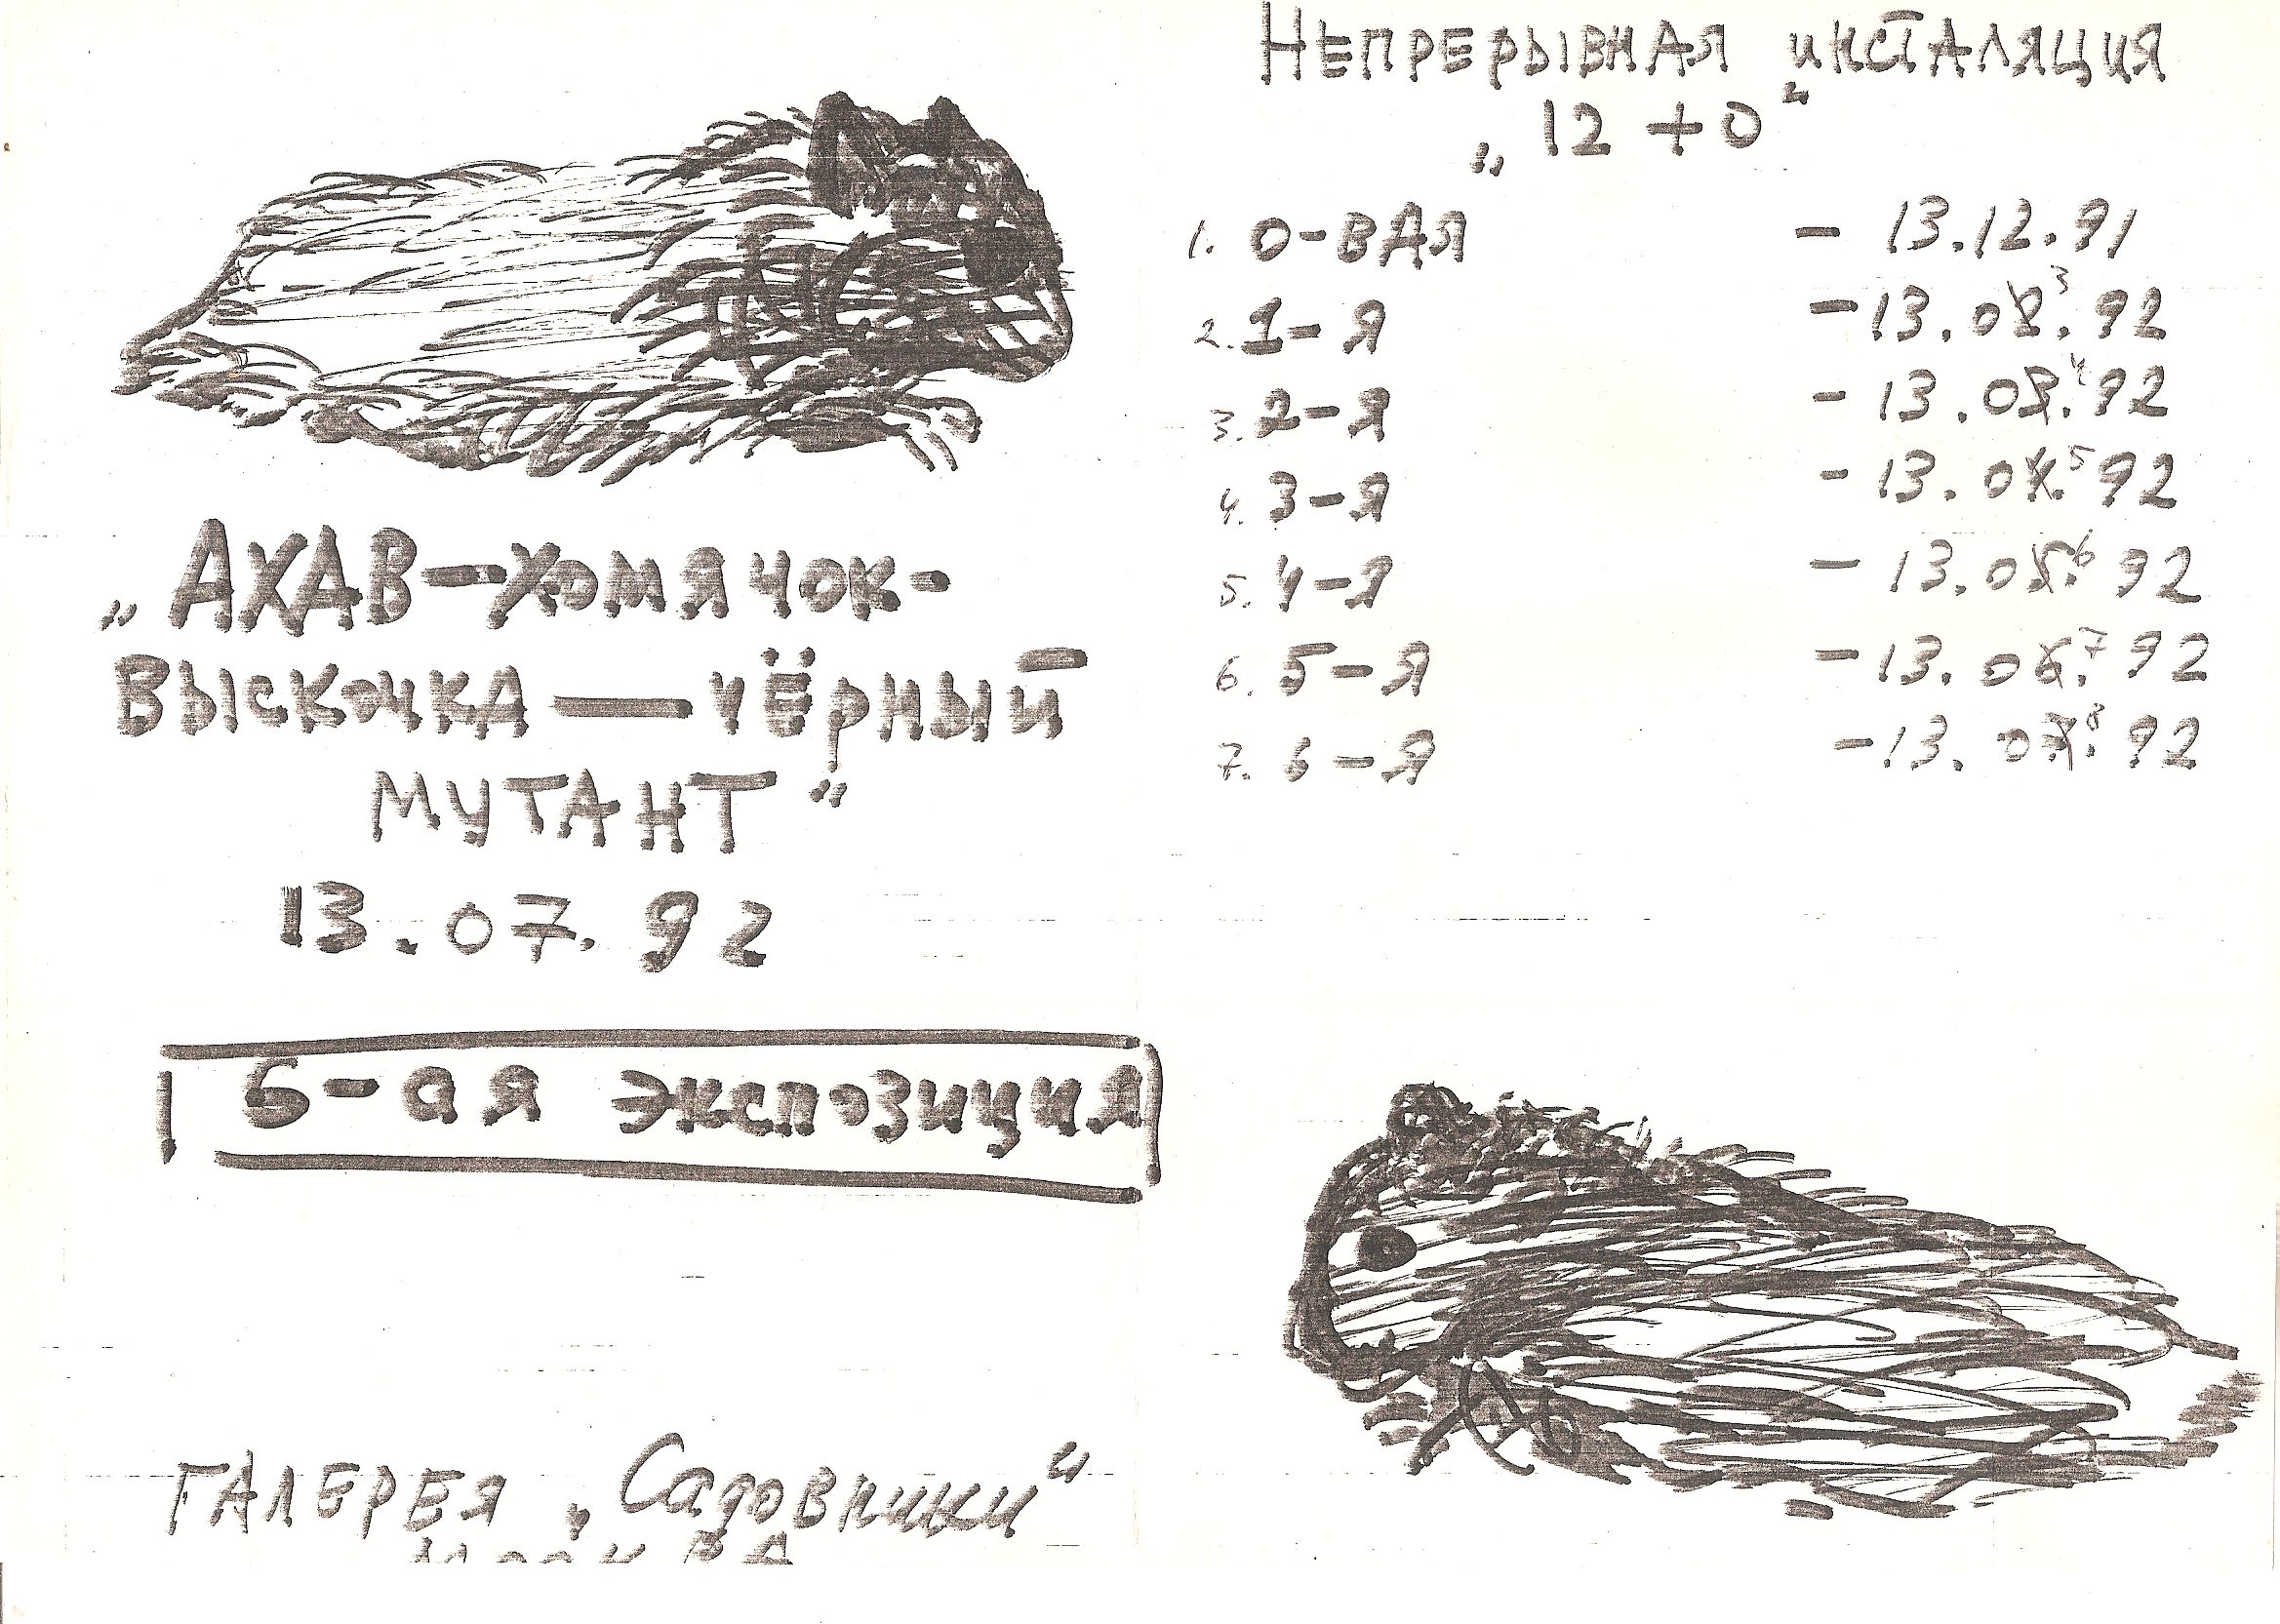 „АХАВ–хомячок-
Выскочка — чёрный
МУТАНТ“
13.07.92
5-ая экспозиция
ГАЛЕРЕЯ „Садовники“
МОСКВА
НЕПРЕРЫВНАЯ инсталяция
„12+0“
1. 0-ВАЯ – 13.12.91
2. 1-я – 13.03.92
3. 2-я – 13.04.92
4. 3-я – 13.05.92
5. 4-я – 13.06.92
6. 5-я – 13.07.92
7. 6-я – 13.08.92